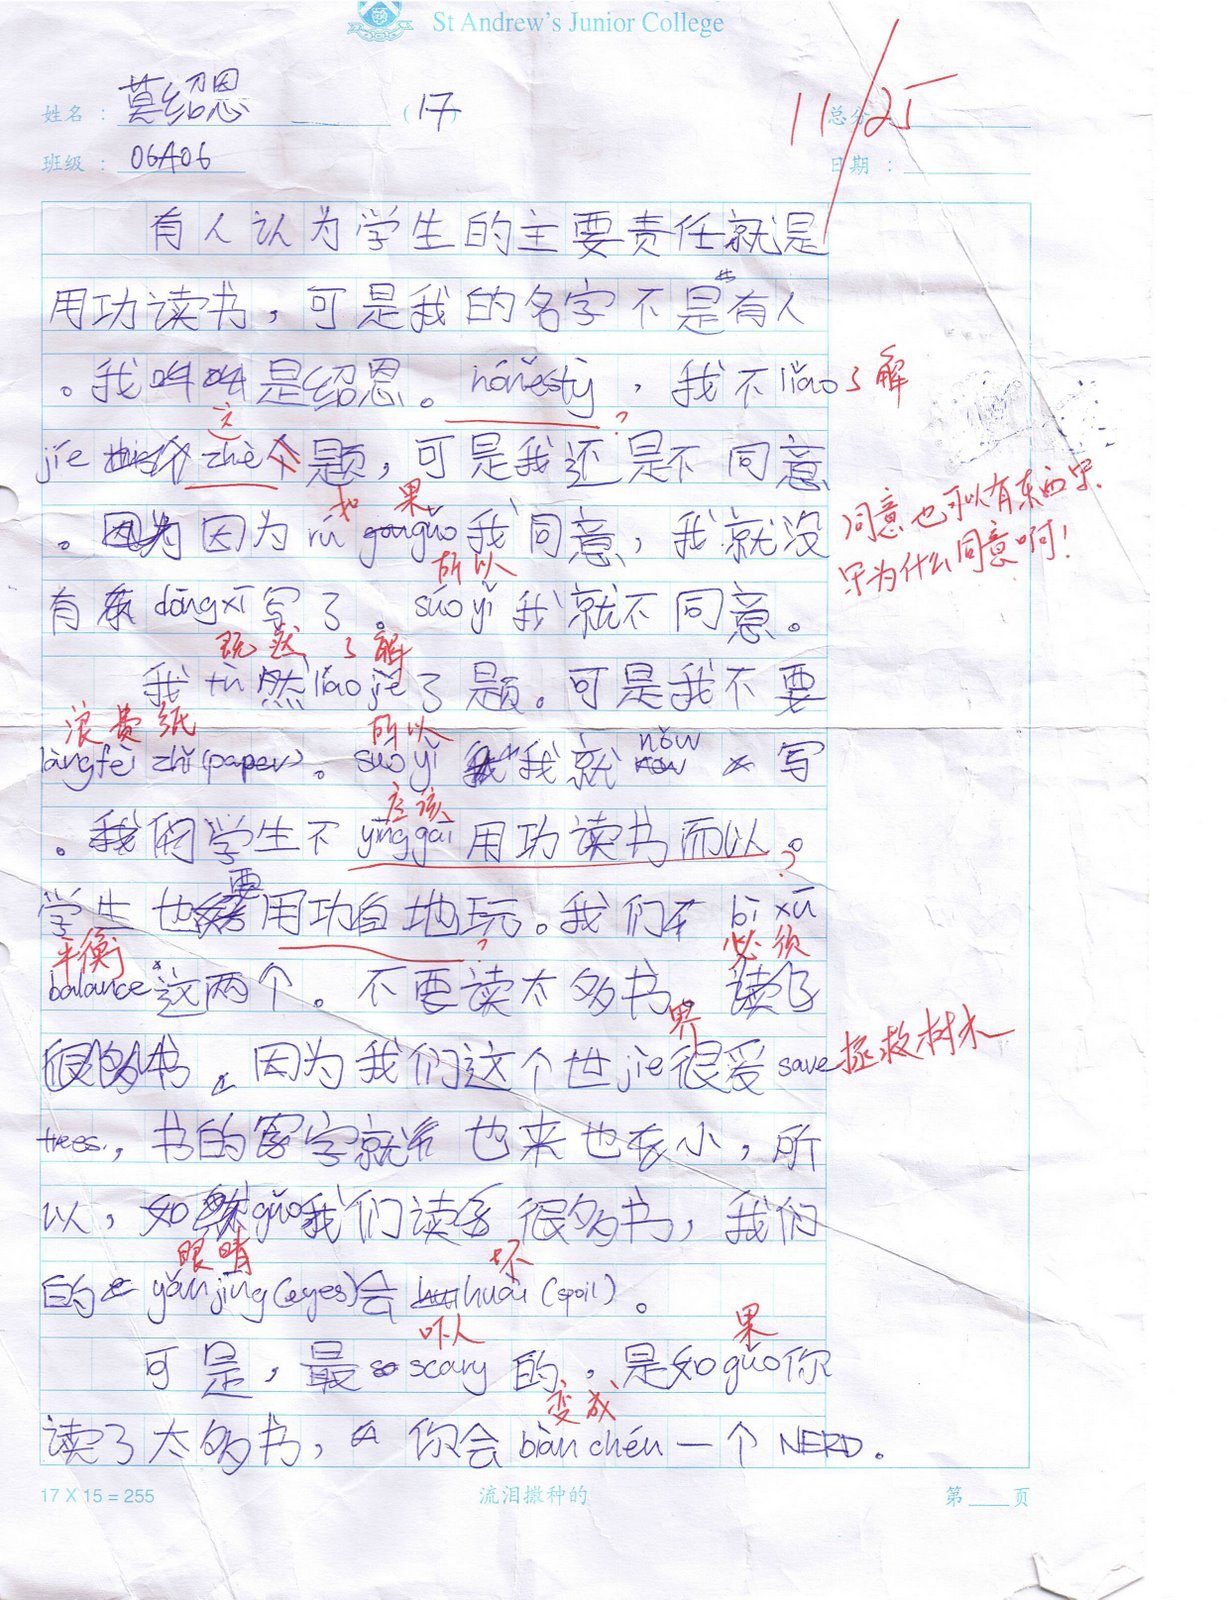 St Andrew's Junior College
姓名： 莫绍恩 （17）
总分 11/25
班级： 06A06
日期：
有人认为学生的主要责任就是
用功读书，可是我的名字不是有人
。我 是绍恩。honesty，我不liǎo 了解
jiě zhè 这 个题，可是我还是不同意
。因为 rú guǒ 如果 我同意，我就没
同意也可以有东西写。
写为什么同意啊！
有 dōng xī 写了。suó yǐ 所以 我就不同意。
我 然 liǎo jiě 了题。可是我不要
既然 了解
làng fèi zhǐ (paper)。suó yǐ 我就 now 写
浪费纸 所以
。我们学生不 yīng gāi 用功读书而以。
应该 ?
学生也要用功自地玩。我们 bì xū
? 必须
平衡
balance 这两个。不要读太多书
界
因为我们这个世jie很爱 save 拯救树木
trees，书的字就 也来也 小，所
以，如 guǒ 我们读 很多书，我们
眼睛 坏
的 yǎn jīng (eyes) 会 huài (spoil)。
吓人 果
可是，最 scary 的，是如 guǒ 你
变成
读了太多书，你会 biàn chén 一个 NERD。
17 X 15 = 255
流泪撒种的
第 页